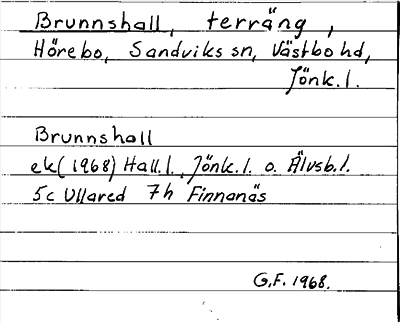 Brunnshall, terräng,
Hörebo, Sandviks sn, Västbo hd,
Jönk. l.
Brunnshall
ek (1968) Hall. l., Jönk. l. o. Älvsb. l.
5c Ullared 7h Finnanäs
G.F. 1968.